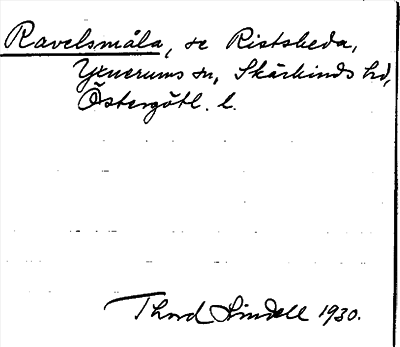 Ravelsmåla, se Ristskeda,
Yxnerums sn, Skärkinds hd,
Östergötl. l.
Thord Lindell 1930.